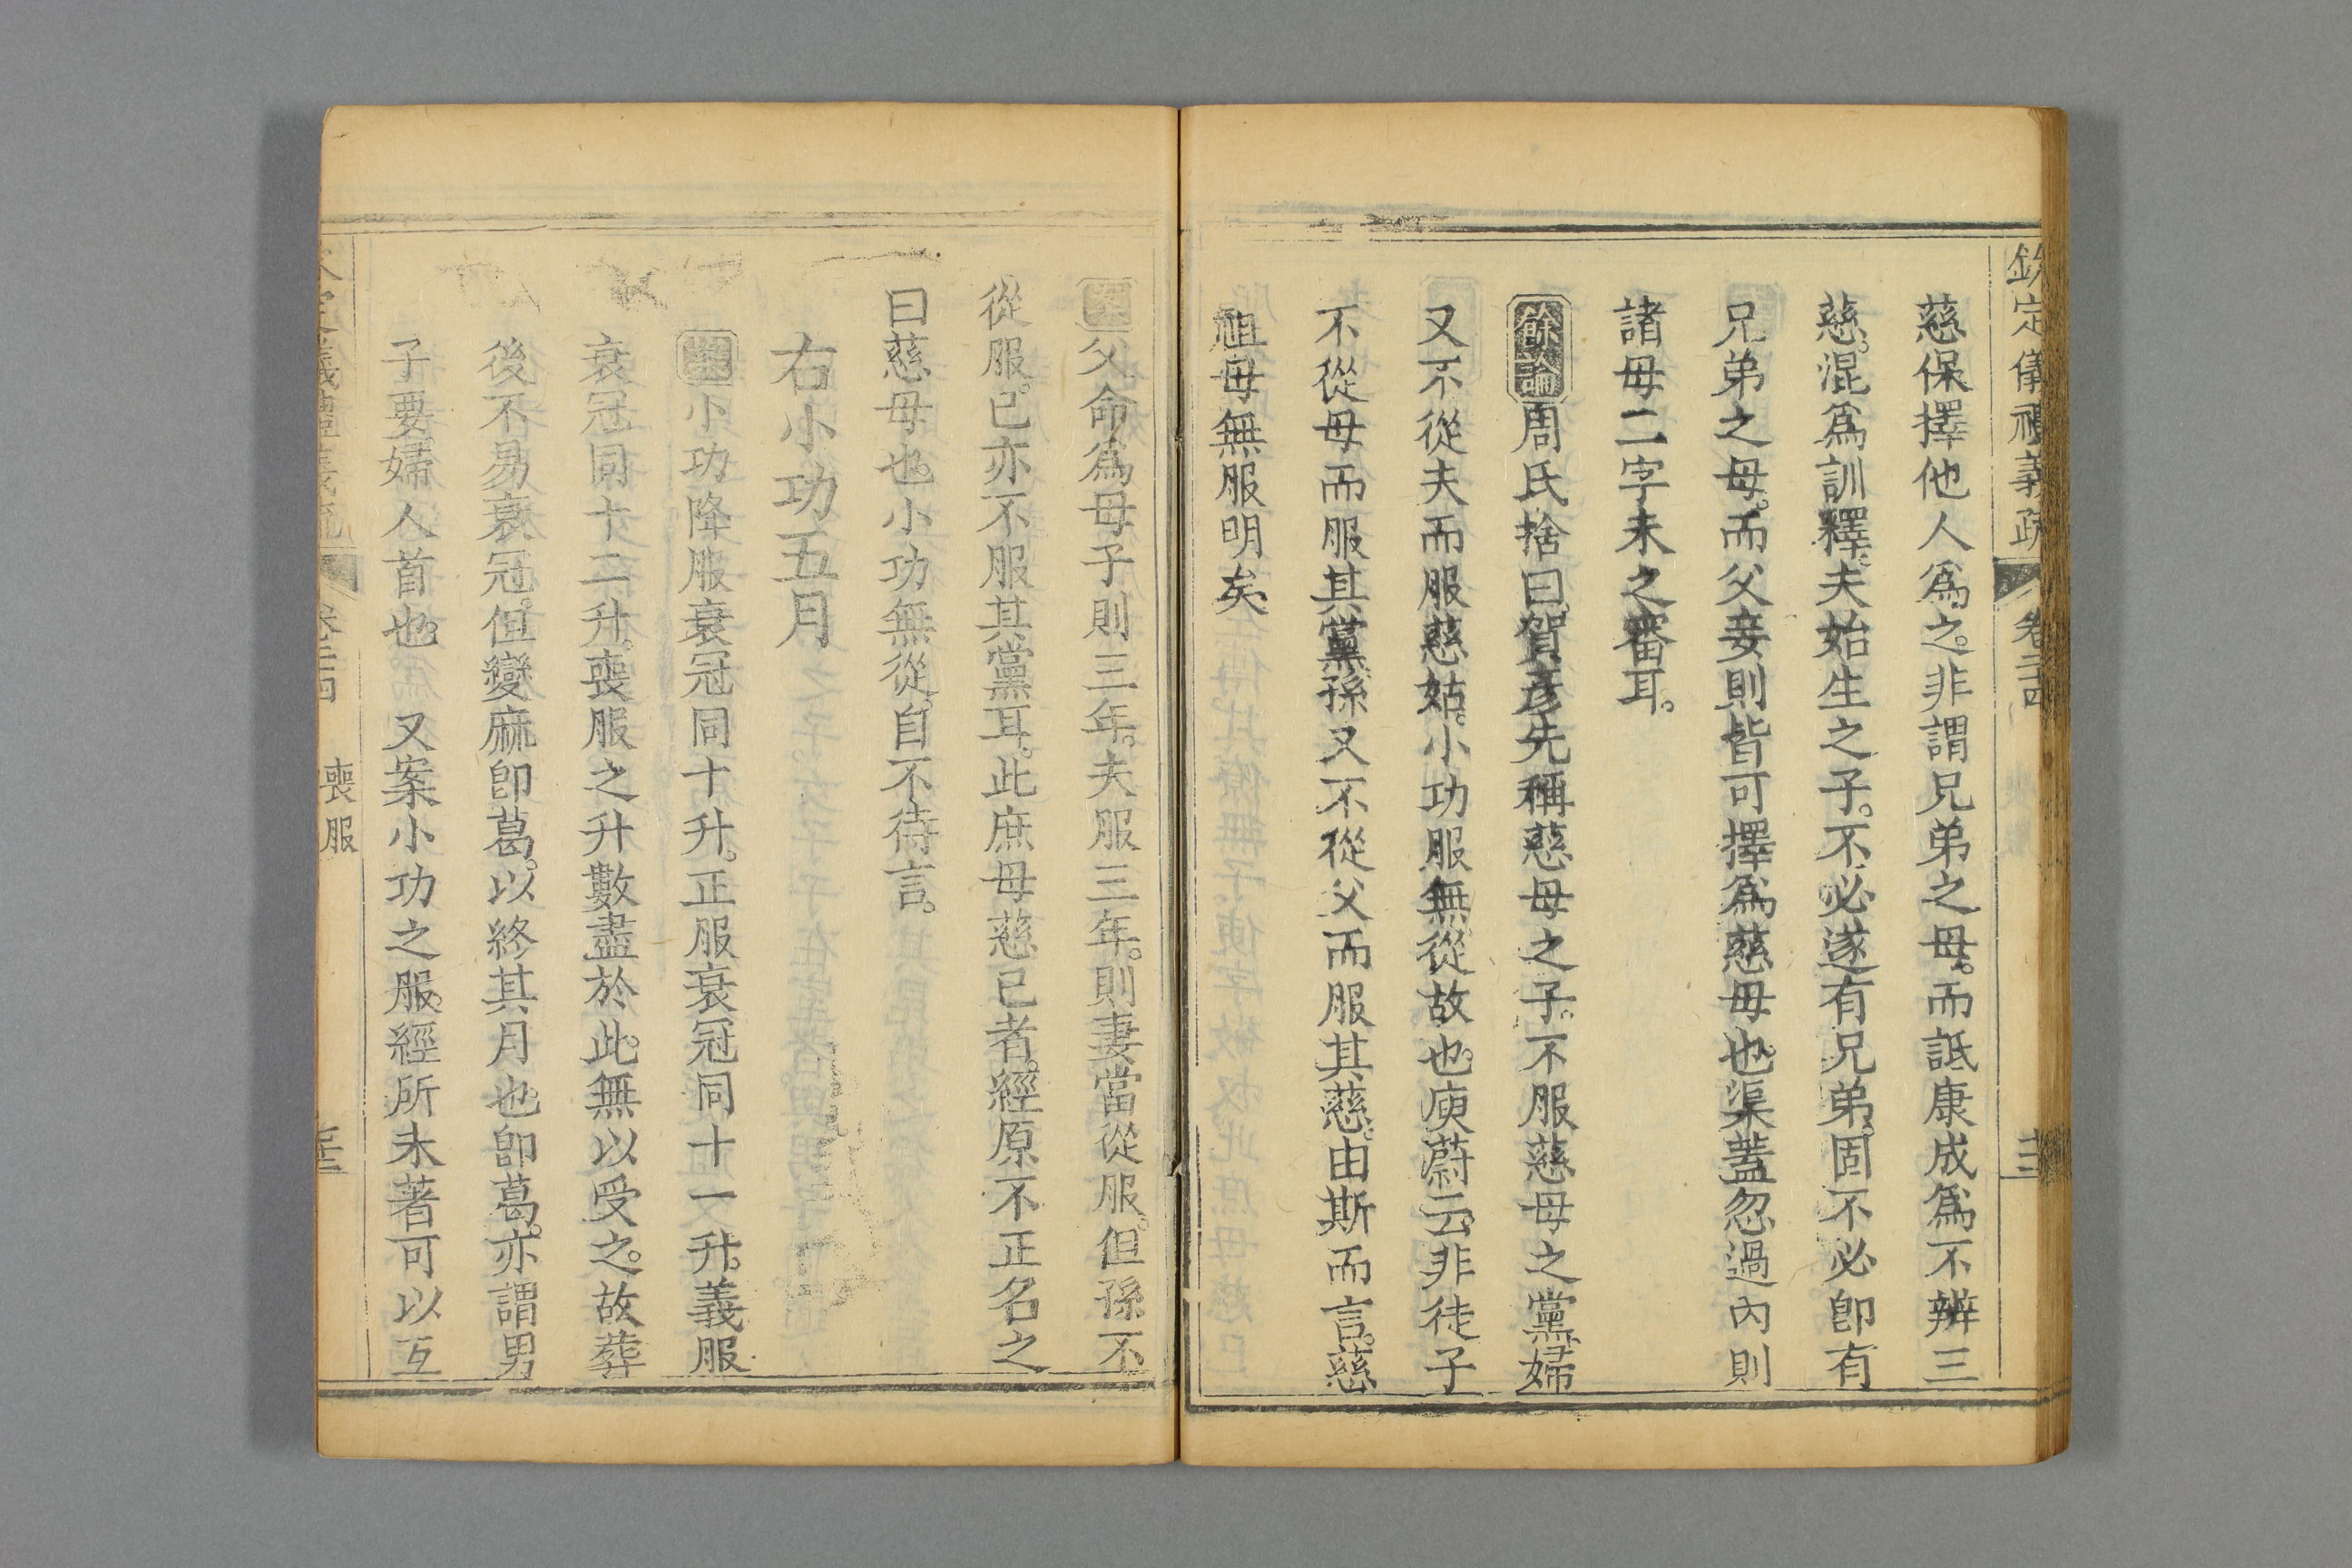 欽定儀禮義疏 卷二十四
慈保擇他人爲之。非謂兄弟之母。而詆康成爲不辨三
慈。混爲訓釋。夫始生之子。不必遂有兄弟。固不必卽有
兄弟之母。而父妾則皆可擇爲慈母也。渠蓋忽過內則
諸母二字未之審耳。
餘論周氏捨曰。賀彥先稱慈母之子。不服慈母之黨。婦
又不從夫而服慈姑。小功服無從故也。庾蔚云。非徒子
不從母而服其黨。孫又不從父而服其慈。由斯而言。慈
祖母無服明矣
父命爲母子則三年。夫服三年。則妻當從服。但孫不
從服。已亦不服其黨耳。此庶母慈已者。經原不正名之
曰慈母也。小功無從。自不待言。
右小功五月
小功降服衰冠同十升。正服衰冠同十一升。義服
衰冠同十二升。喪服之升數盡於此。無以受之。故葬
後不易衰冠。但變麻卽葛。以終其月也。卽葛。亦謂男
子要婦人首也。 又案小功之服。經所未著可以互
喪服